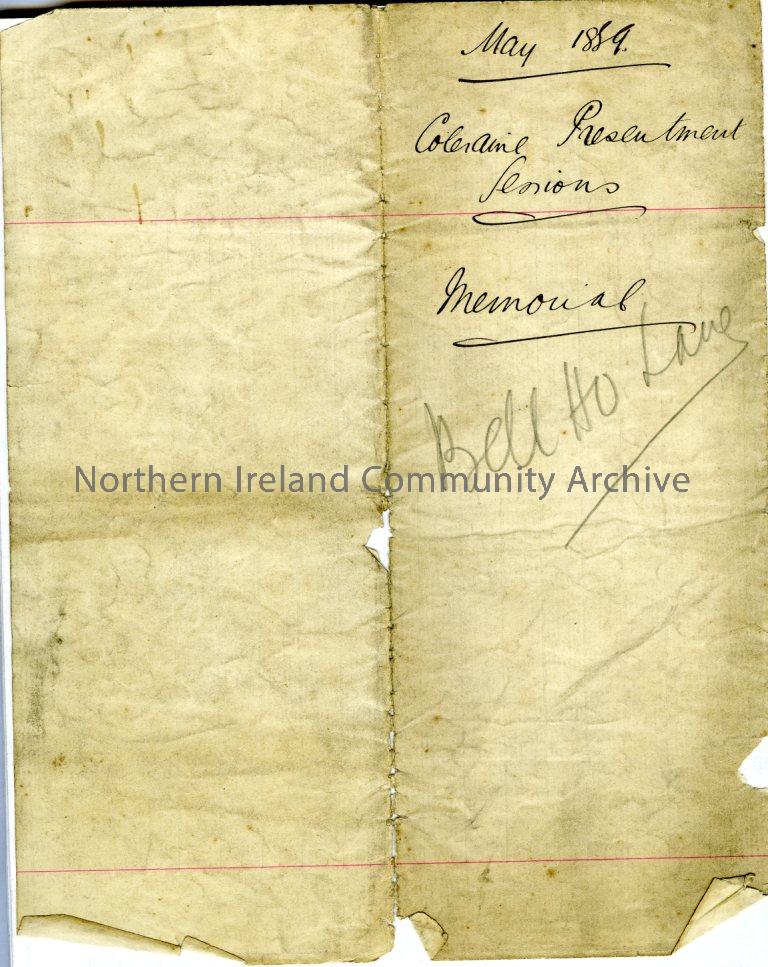 May 1889.
Coleraine Presentment
Sessions
Memorial
Bell Ho Lane
Northern Ireland Community Archive